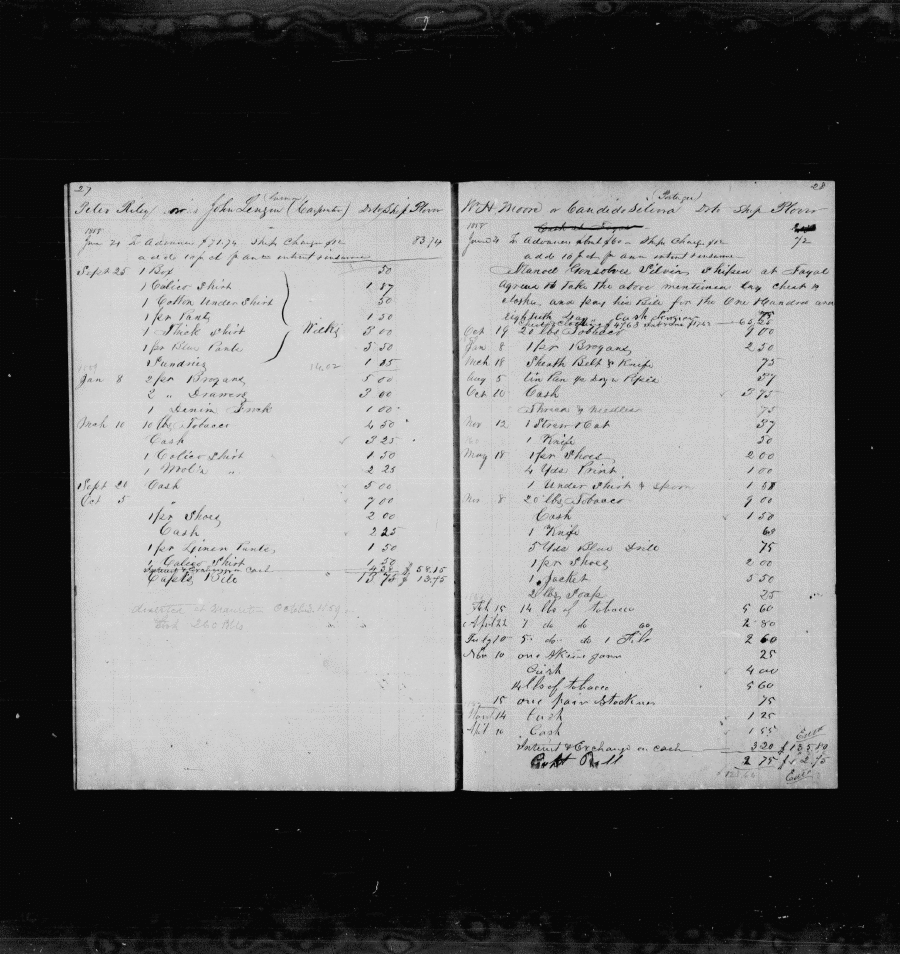 27
Peter Riley or John Lenzen (Carpenter) Dr to Ship Plover
1858
June 21 To Advances $71.74 Ship Charges &c 83 74
add 10 p ct p ann interest & insurance
Sept 25 1 Box 50
1 Calico Shirt 1 87
1 Cotton Under Shirt 50
1 pr Pants 1 50
1 Thick Shirt 3 00
Wicks
1 pr Blue Pants 3 50
Sundries 1 35
Jan 8 2 pr Brogans 5 00
2 " Drawers 3 00
1 Denim Frock 1 00
Mch 10 10 lbs Tobacco 4 50
Cash 3 25
1 Calico Shirt 1 50
1 " " 2 25
Sept 20 Cash 5 00
Oct 5 " 7 00
1 pr Shoes 2 00
Cash 2 25
1 pr Linen Pants 1 50
1 Calico Shirt 1 50
Interest & Exchange on Cash 4 38 $ 58.15
Capts Bill 13 75 $ 13.75
deserted at October 1859
28
W H Moore or Candido Selvia Dr to Ship Plover
1858
June 21 To Advances Ship Charges &c 72
add 10 p ct p ann interest & insurance
Manoel Gonsolves Silvia Shipped at Fayal
Agrees to take the above mentioned Lay Chest &
clothes, and pay his Bill for the One Hundred and
Eightieth Lay 75
65 25
Oct 19 20 lbs Tobacco 9 00
Jan 8 1 pr Brogans 2 50
Mch 18 Sheath Belt & Knife 75
Aug 5 Tin Pan & doz Pipes 37
Oct 10 Cash 3 75
Thread & Needles 75
Nov 12 1 Straw Hat 37
1 Knife 50
May 18 1 pr Shoes 2 00
4 Yds Print 1 00
1 Under Shirt & Spoon 1 38
Nov 8 20 lbs Tobacco 9 00
Cash 1 50
1 Knife 60
5 Yds Blue Drill 75
1 pr Shoes 2 00
1 Jacket 5 50
2 lbs Soap 25
Feb 15 14 lbs of tobacco 5 60
April 22 7 do do 2 80
July 10 5 do do 1 File 2 60
Nov 10 one Skein yarn 25
Cash 4 00
14 lbs of tobacco 5 60
15 one pair Stockings 75
March 14 Cash 1 25
Apl 10 Cash 1 55
Interest & Exchange on cash 3 20 $ 135 80
Capt Bill 2 75 $ 2.75